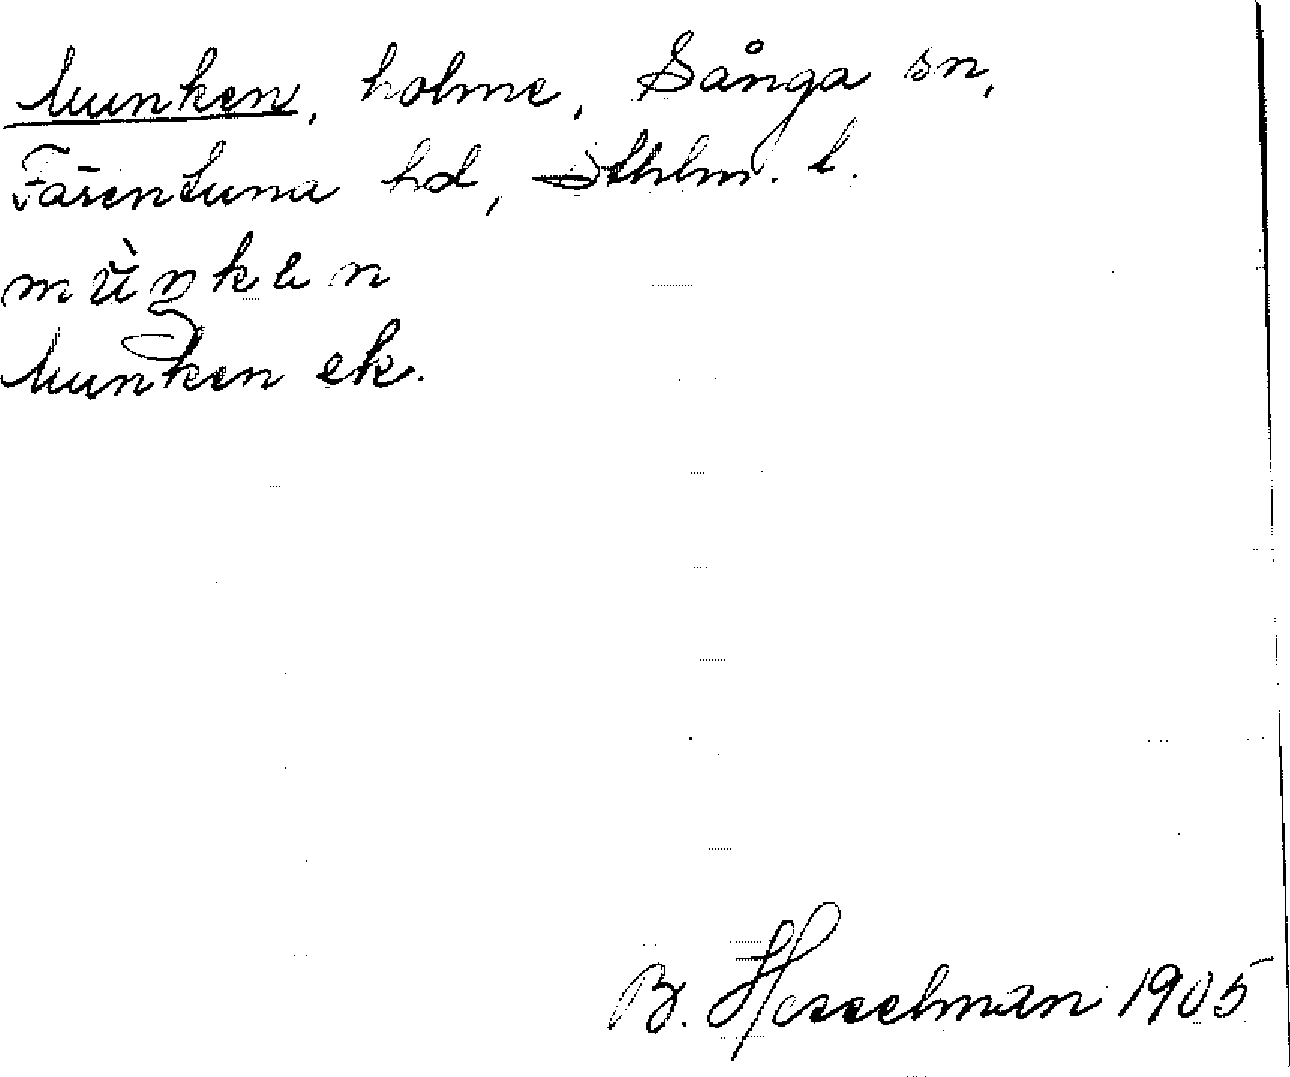 Munken, holme, Sånga sn,
Färentuna hd, Sthlm. l.
mùŋkən
Munken ek.
B. Hesselman 1905